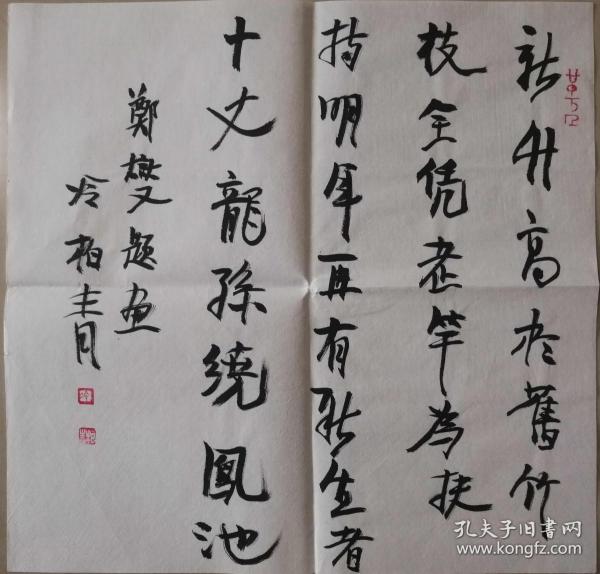 新竹高於舊竹
枝全凭老竿為扶
持明年再有新生者
十丈龍孫繞鳳池
鄭燮题画
冷柏青
孔夫子旧书网
www.kongfz.com